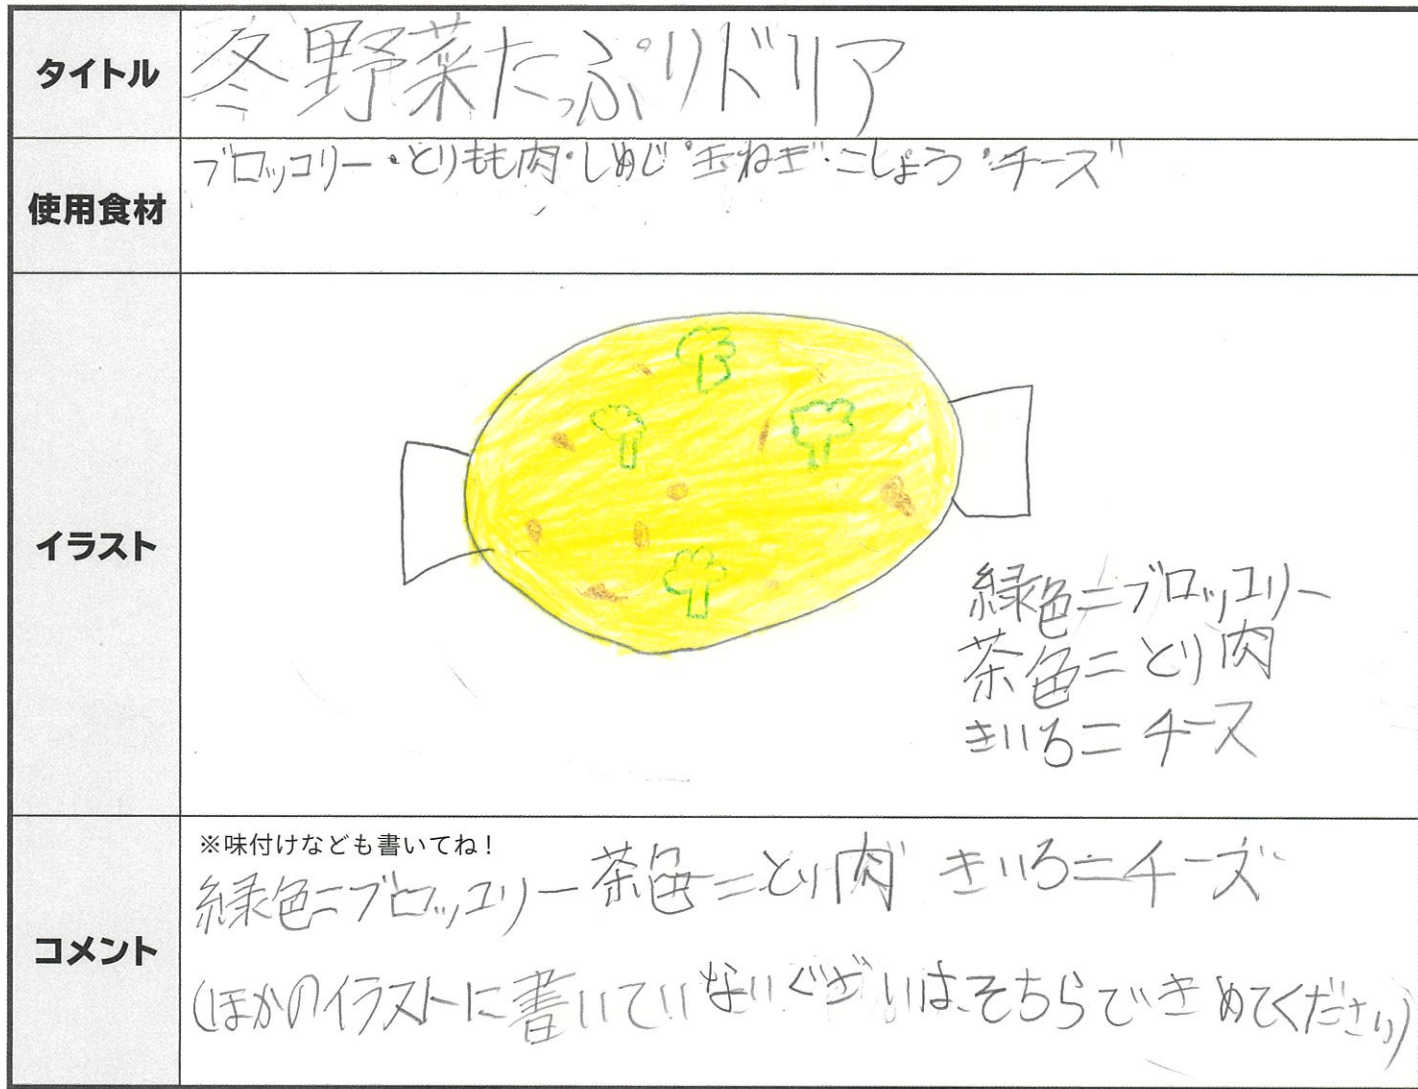 タイトル
冬野菜たっぷりドリア
使用食材
ブロッコリー・とりもも肉・しめじ・玉ねぎ・こしょう・チーズ
イラスト
緑色=ブロッコリー
茶色=とり肉
きいろ=チース
コメント
※味付けなども書いてね!
緑色=ブロッコリー 茶色=とり肉 きいろ=チーズ
(ほかのイラストに書いていないぐざいは、そちらできめてください)